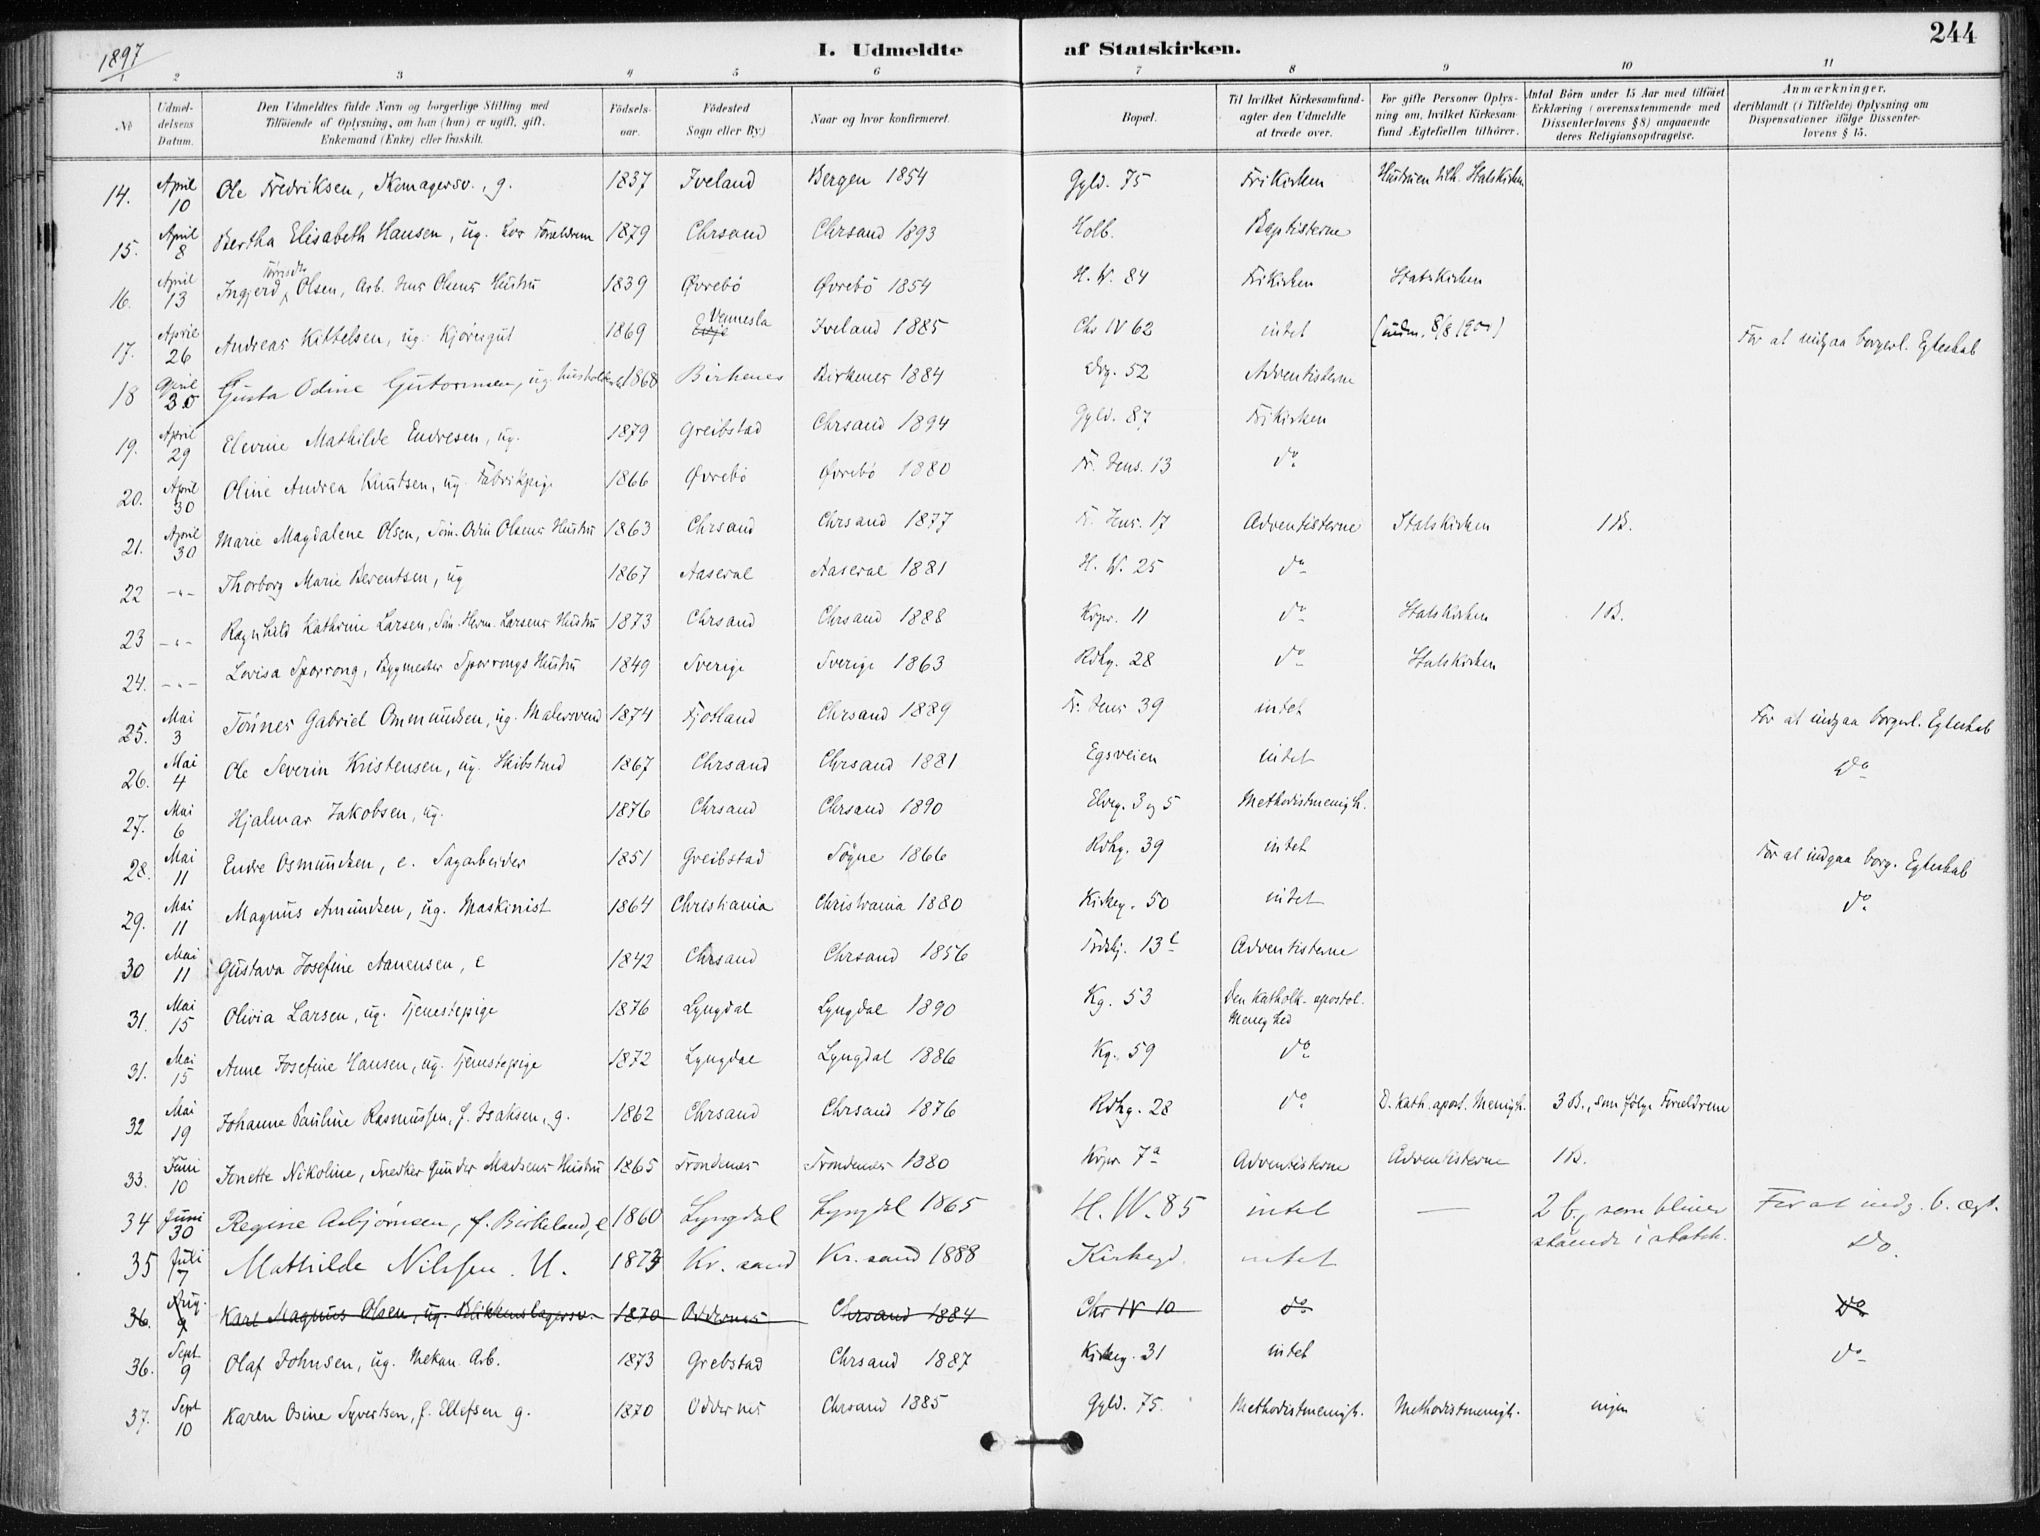 1897
I. Udmeldte af Statskirken.
244
1 2 3 4 5 6 7 8 9 10 11
№ | Udmel-delsens Datum. | Den Udmeldtes fulde Navn og borgerlige Stilling med Tilføiende af Oplysning, om han (hun) er ugift, gift, Enkemand (Enke) eller fraskilt. | Fødsels-aar. | Fødested Sogn eller By.) | Naar og hvor konfirmeret. | Bopæl. | Til hvilket Kirkesamfund agter den Udmeldte at træde over. | For gifte Personer Oplysning om, hvilket Kirkesamfund Ægtefællen tilhører. | Antal Børn under 15 Aar med tilføiet Erklæring (overensstemmende med Dissenterlovens § 8) angaaende deres Religionsopdragelse. | Anmærkninger, deriblandt (i Tilfælde) Oplysning om Dispensationer ifølge Dissenterlovens § 15.
14. April 10 Ole Fredriksen, Skomagersv., g. 1837 Iveland Bergen 1854 Gyld. 75 Frikirken Hustruen tilh. Statskirken
15. April 8 Bertha Elisabeth Hansen, ug. hos Forældrene 1879 Chrsand Chrsand 1893 Holb. Baptisterne
16. April 13 Ingjerd Tørresdtr Olsen, Arb. Olsens Hustru 1839 Øvrebö Øvrebö 1854 H. W. 84 Frikirken Statskirken
17. April 26 Andreas Kittelsen, ug. Kjøresgut 1869 Vennesla Iveland 1885 Chr IV 62 intet (indm. 8/8 1900) For at indgaa borgerl. Egteskab
18 April 30 Gusta Odine Gutormsen, ug. husholderske 1868 Birkenes Birkenes 1884 Drg. 52 Adventisterne
19. April 29 Elevine Mathilde Endresen, ug. 1879 Greibstad Chrsand 1894 Gyld. 87 Frikirken
20. April 30 Oline Andrea Knutsen, ug. Fabrikpige 1866 Øvrebö Øvrebö 1880 Fr. Jens. 13 do
21. April 30 Marie Magdalene Olsen, Søm. Odin Olsens Hustru 1863 Chrsand Chrsand 1877 Fr. Jens. 17 Adventisterne Statskirken 1 B.
22 -"- Thorborg Marie Berentsen, ug 1867 Aaseral Aaseral 1881 H. W. 25 do
23 -"- Ragnhild Kathrine Larsen, Søm. Herm. Larsens Hustru 1873 Chrsand Chrsand 1888 Krpr. 11 do Statskirken 1 B.
24. -"- Lovisa Sporrong, Bygmester Sporrongs Hustru 1849 Sverige Sverige 1863 Rdhg. 28 do Statskirken
25. Mai 3 Tönnes Gabriel Ommundsen, ug. Malersvend 1874 Fjotland Chrsand 1889 Fr. Jens 39 intet For at indgaa borgerl. Egteskab
26. Mai 4 Ole Severin Kristensen, ug. 1867 Chrsand Chrsand 1881 Egsveien intet do
27. Mai 6 Hjalmar Jakobsen, ug. 1876 Chrsand Chrsand 1890 Elveg. 3 og 5 Methodistmenigh.
28. Mai 11 Endre Osmundsen, e. Sagarbeider 1851 Greibstad Søgne 1866 Rdhg. 39 intet For at indgaa borg. Egteskab
29. Mai 11 Magnus Amundsen, ug. Maskinist 1864 Christiania Christiania 1880 Kirkeg. 50 intet do
30 Mai 11 Gustava Josefine Aanensen, e 1842 Chrsand Chrsand 1856 Adventisterne
31. Mai 15 Olivia Larsen, ug. Tjenestepige 1876 Lyngdal Lyngdal 1890 Kg. 53 Den Katholk- apostol. Menighed
31. Mai 15 Anne Josefine Hansen, ug. Tjenstepige 1872 Lyngdal Lyngdal 1886 Kg. 59 do
32 Mai 19 Johanne Pauline Rasmussen, f. Isaksen, g. 1862 Chrsand Chrsand 1876 Rdhg. 28 do D. kath. apost. Menigh. 3 B., som følge Forældrene
33. Juni 10 Jonette Nikoline, Snedker Gunder Madsens Hustru 1865 Trondenes Trondenes 1880 Krpr 7a Adventisterne Adventisterne 1 B.
34 Juni 30 Regine Asbjørnsen, f. Birkeland, e 1860 Lyngdal Lyngdal 1865 H. W. 85 intet — 2 b., som bliver staaende i statsk. For at indg. b. ægt.
35 Juli 7 Mathilde Nilssen. U. 1873 Kr.sand Kr.sand 1888 Kirkegd. intet do.
36. Aug. 9 Karl Magnus Olsen, ug. Blikkenslagersv. 1870 Oddernes Chrsand 1884 Chr IV 10 do do
36. Sept 9 Olaf Johnsen, ug. Mekan. Arb. 1873 Grebstad Chrsand 1887 Kirkeg. 31 intet do
37. Sept 10 Karen Osine Syvertsen, f. Ellefsen g. 1870 Oddernes Chrsand 1885 Gyld. 75. Methodistmenigh. Methodistmenigh. ingen